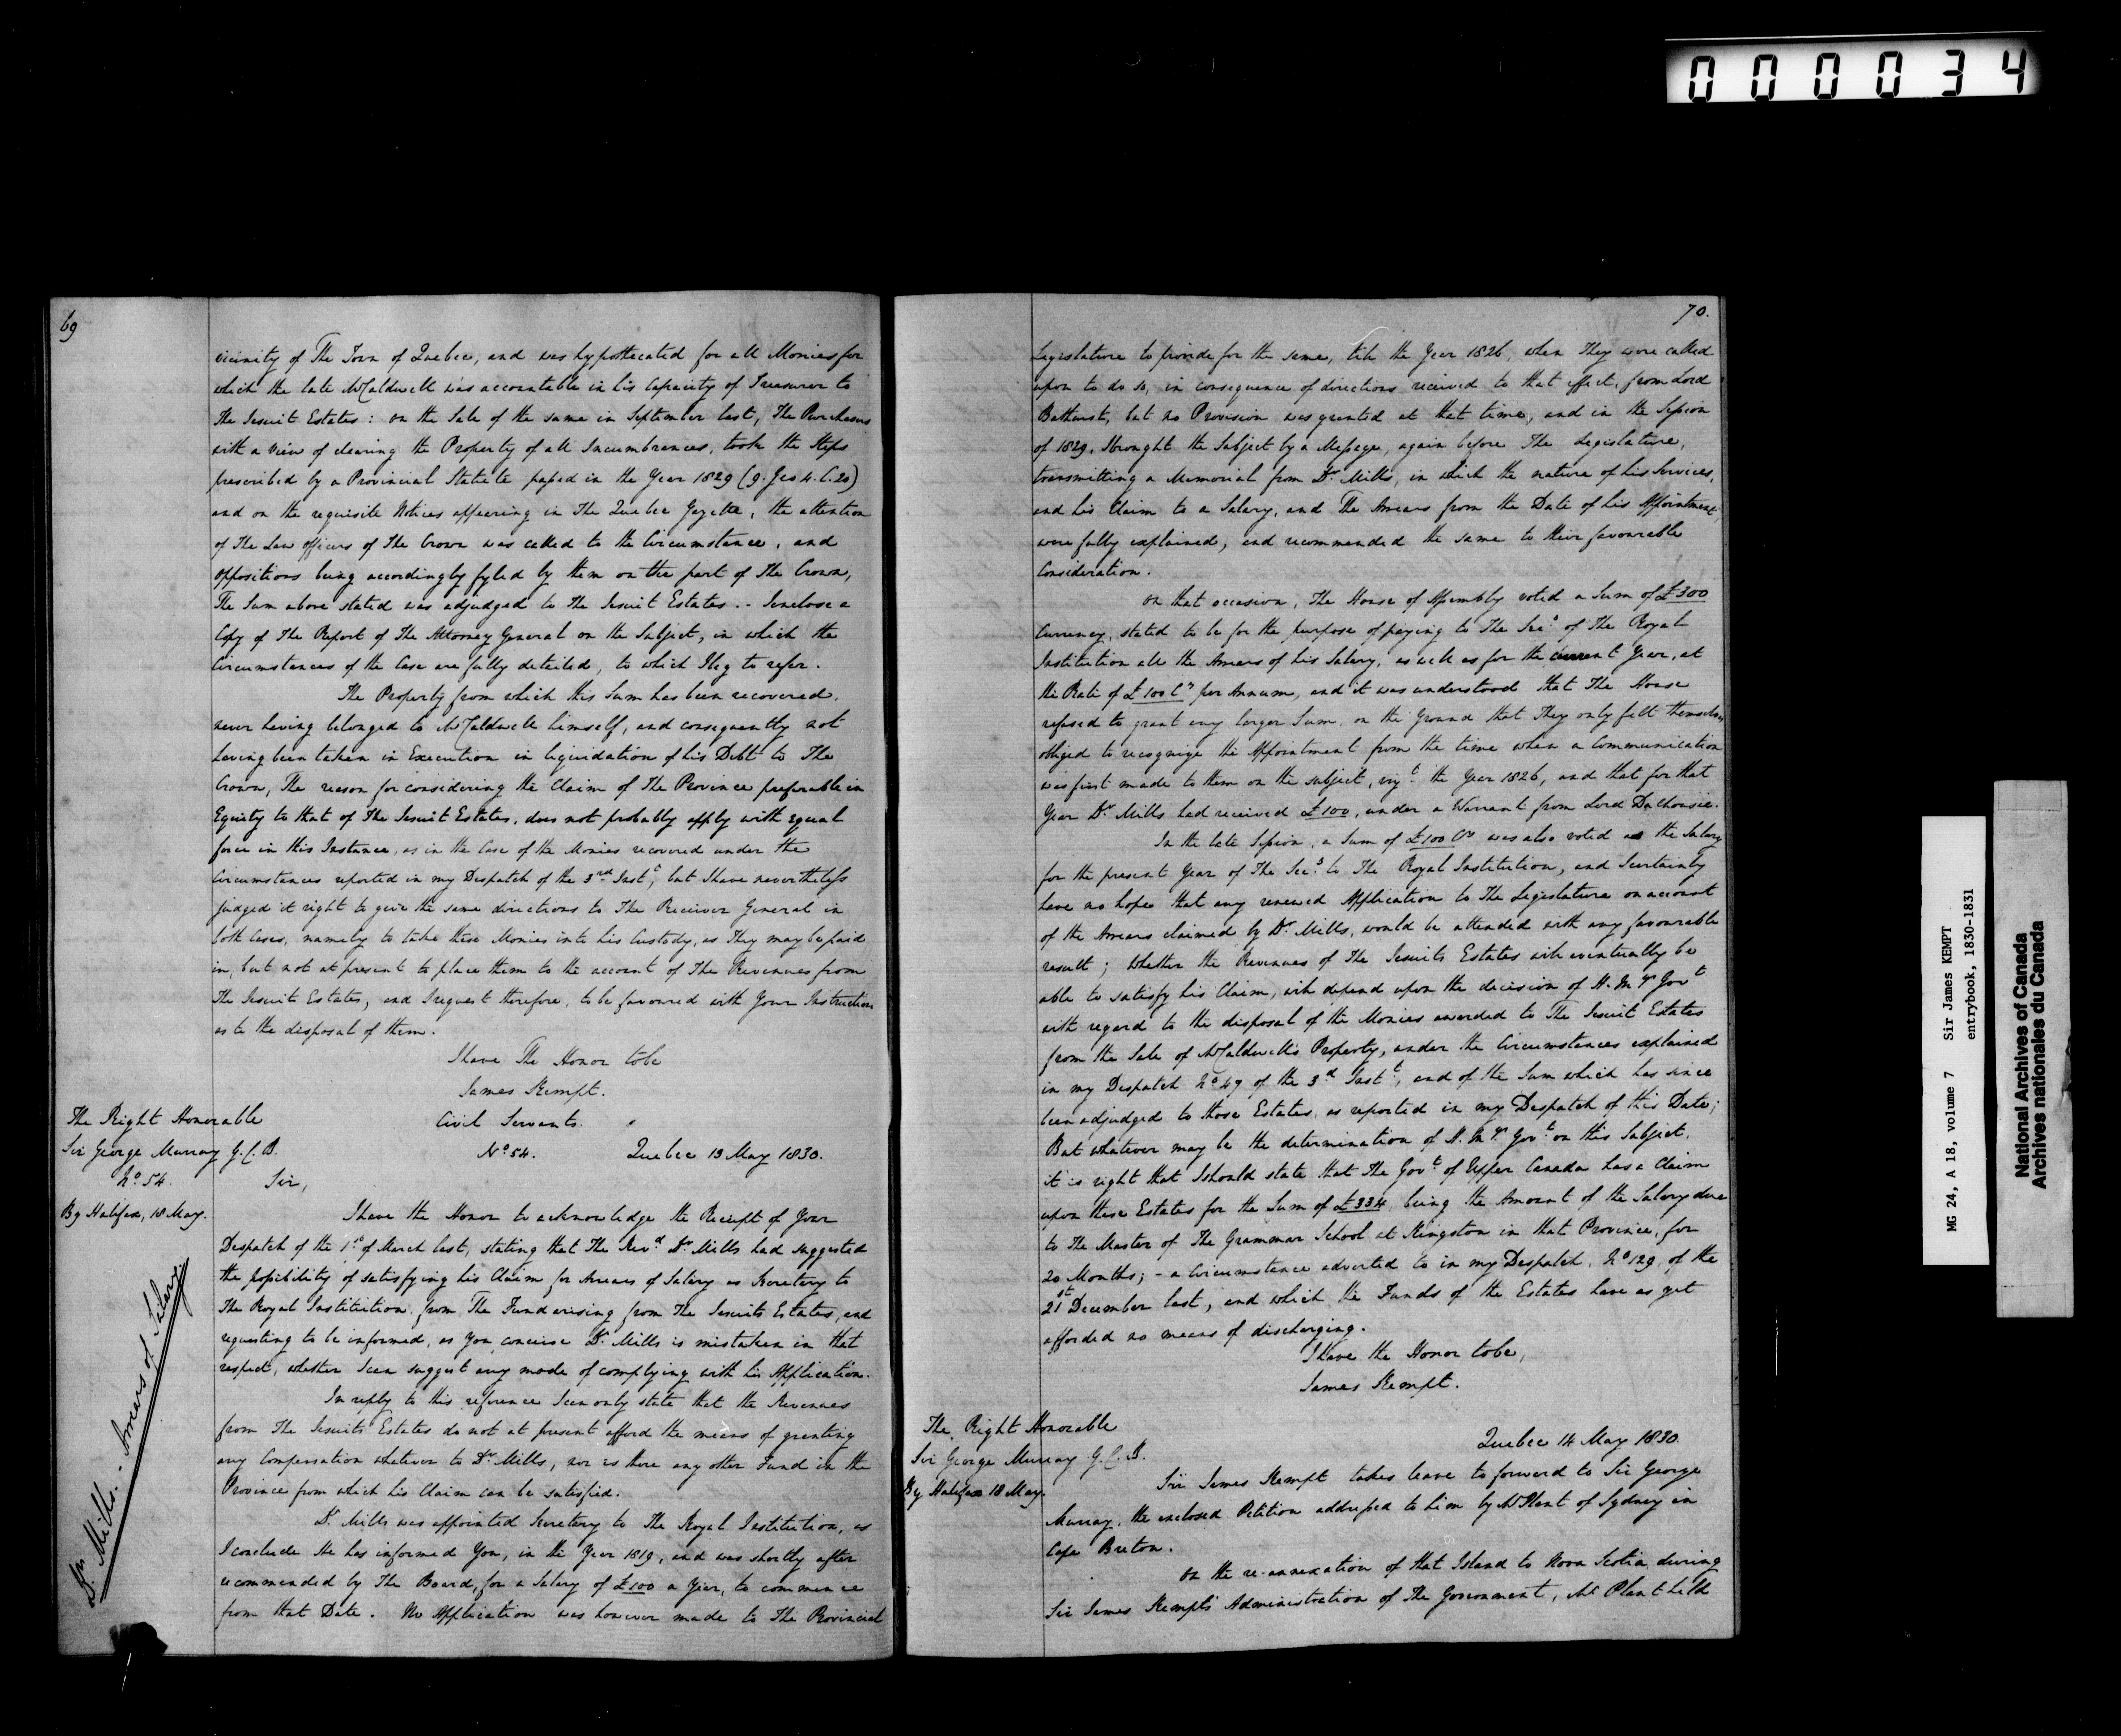 000034
69
vicinity of The Town of Quebec, and was hypothecated for all Monies for
which the late Mr Caldwell was accountable in his Capacity of Treasurer to
The Jesuit Estates: on the Sale of the same in September last, The Purchasers
with a view of clearing the Property of all Incumbrances, took the Steps
prescribed by a Provincial Statute passed in the Year 1829 (9. Geo 4. C. 20)
and on the requisite Notices appearing in The Quebec Gazette, the attention
of The Law officers of The Crown was called to the Circumstance, and
oppositions being accordingly fyled by them on the part of The Crown,
The Sum above stated was adjudged to The Jesuit Estates. - I enclose a
Copy of The Report of The Attorney General on the Subject, in which the
Circumstances of the Case are fully detailed, to which I beg to refer.
The Property from which this Sum has been recovered,
never having belonged to Mr Caldwell himself, and consequently not
having been taken in Execution in liquidation of his Debt to The
Crown, The reason for considering the Claim of The Province preferable in
Equity to that of The Jesuit Estates, does not probably apply with equal
force in this Instance, as in the Case of the Monies recovered under the
Circumstances reported in my Despatch of the 3rd Inst, but I have nevertheless
judged it right to give the same directions to The Receiver General in
both Cases, namely to take these Monies into his Custody, as They may be paid
in, but not at present to place them to the account of The Revenues from
The Jesuit Estates, and I request therefore, to be favoured with Your Instructions
as to the disposal of them.
I have The Honor to be
James Kempt.
The Right Honorable
Sir George Murray G.C.B.
No 54.
By Halifax, 18 May.
Civil Servants.
No 54. Quebec 13 May 1830.
Sir,
I have the Honor to acknowledge the Receipt of Your
Despatch of the 1st of March last, stating that The Revd Dr Mills had suggested
the possibility of satisfying his Claim for Arrears of Salary as Secretary to
The Royal Institution, from The Fund arising from The Jesuits Estates, and
requesting to be informed, as You conceive Dr Mills is mistaken in that
respect, whether I can suggest any mode of complying with his Application.
Dr Mills. - Arrears of Salary
In reply to this reference I can only state that the Revenues
from The Jesuits Estates do not at present afford the means of granting
any Compensation whatever to Dr Mills, nor is there any other Fund in the
Province from which his Claim can be satisfied.
Dr Mills was appointed Secretary to The Royal Institution, as
I conclude He has informed You, in the Year 1819, and was shortly after
recommended by The Board, for a Salary of £100 a Year, to commence
from that Date. No Application was however made to The Provincial
70.
Legislature to provide for the same, till the Year 1826, when They were called
upon to do so, in consequence of directions received to that effect, from Lord
Bathurst, but no Provision was granted at that time, and in the Session
of 1829, I brought the Subject by a Message, again before The Legislature,
transmitting a Memorial from Dr Mills, in which the nature of his Services,
and his Claim to a Salary, and The Arrears from the Date of his Appointment,
were fully explained, and recommended the same to their favourable
Consideration.
On that occasion, The House of Assembly voted a Sum of £300
Currency, stated to be for the purpose of paying to The Secy of The Royal
Institution all the Arrears of his Salary, as well as for the current Year, at
the Rate of £100 Cy per Annum, and it was understood that The House
refused to grant any larger Sum, on the Ground that They only felt themselves
obliged to recognize the Appointment from the time when a Communication
was first made to them on the subject, vizt the Year 1826, and that for that
Year Dr Mills had received £100, under a Warrant from Lord Dalhousie.
In the late Session, a Sum of £100 Cy was also voted as the Salary
for the present Year of The Secy to The Royal Institution, and I certainly
have no hope that any renewed Application to The Legislature on account
of the Arrears claimed by Dr Mills, would be attended with any favourable
result; Whether the Revenues of The Jesuits Estates will eventually be
able to satisfy his Claim, will depend upon the decision of H. My's Govt
with regard to the disposal of the Monies awarded to The Jesuit Estates
from the Sale of Mr Caldwell's Property, under the Circumstances explained
in my Despatch No 49 of the 3d Instt, and of the Sum which has since
been adjudged to those Estates, as reported in my Despatch of this Date;
But whatever may be the determination of H. My's Govt on this Subject,
it is right that I should state that The Govt of Upper Canada has a Claim
upon these Estates for the Sum of £334, being the Amount of the Salary due
to The Master of The Grammar School at Kingston in that Province, for
20 Months; - a Circumstance adverted to in my Despatch, No 129, of the
21st December last, and which the Funds of the Estates have as yet
afforded no means of discharging.
I have the Honor to be,
James Kempt.
The Right Honorable
Sir George Murray G.C.B.
By Halifax 18 May.
Quebec 14 May 1830.
Sir James Kempt takes leave to forward to Sir George
Murray, the enclosed Petition addressed to him by Mr Plant of Sydney in
Cape Breton.
On the re-annexation of that Island to Nova Scotia during
Sir James Kempt's Administration of The Government, Mr Plant held
MG 24, A 18, volume 7 Sir James KEMPT
entrybook, 1830-1831
National Archives of Canada
Archives nationales du Canada